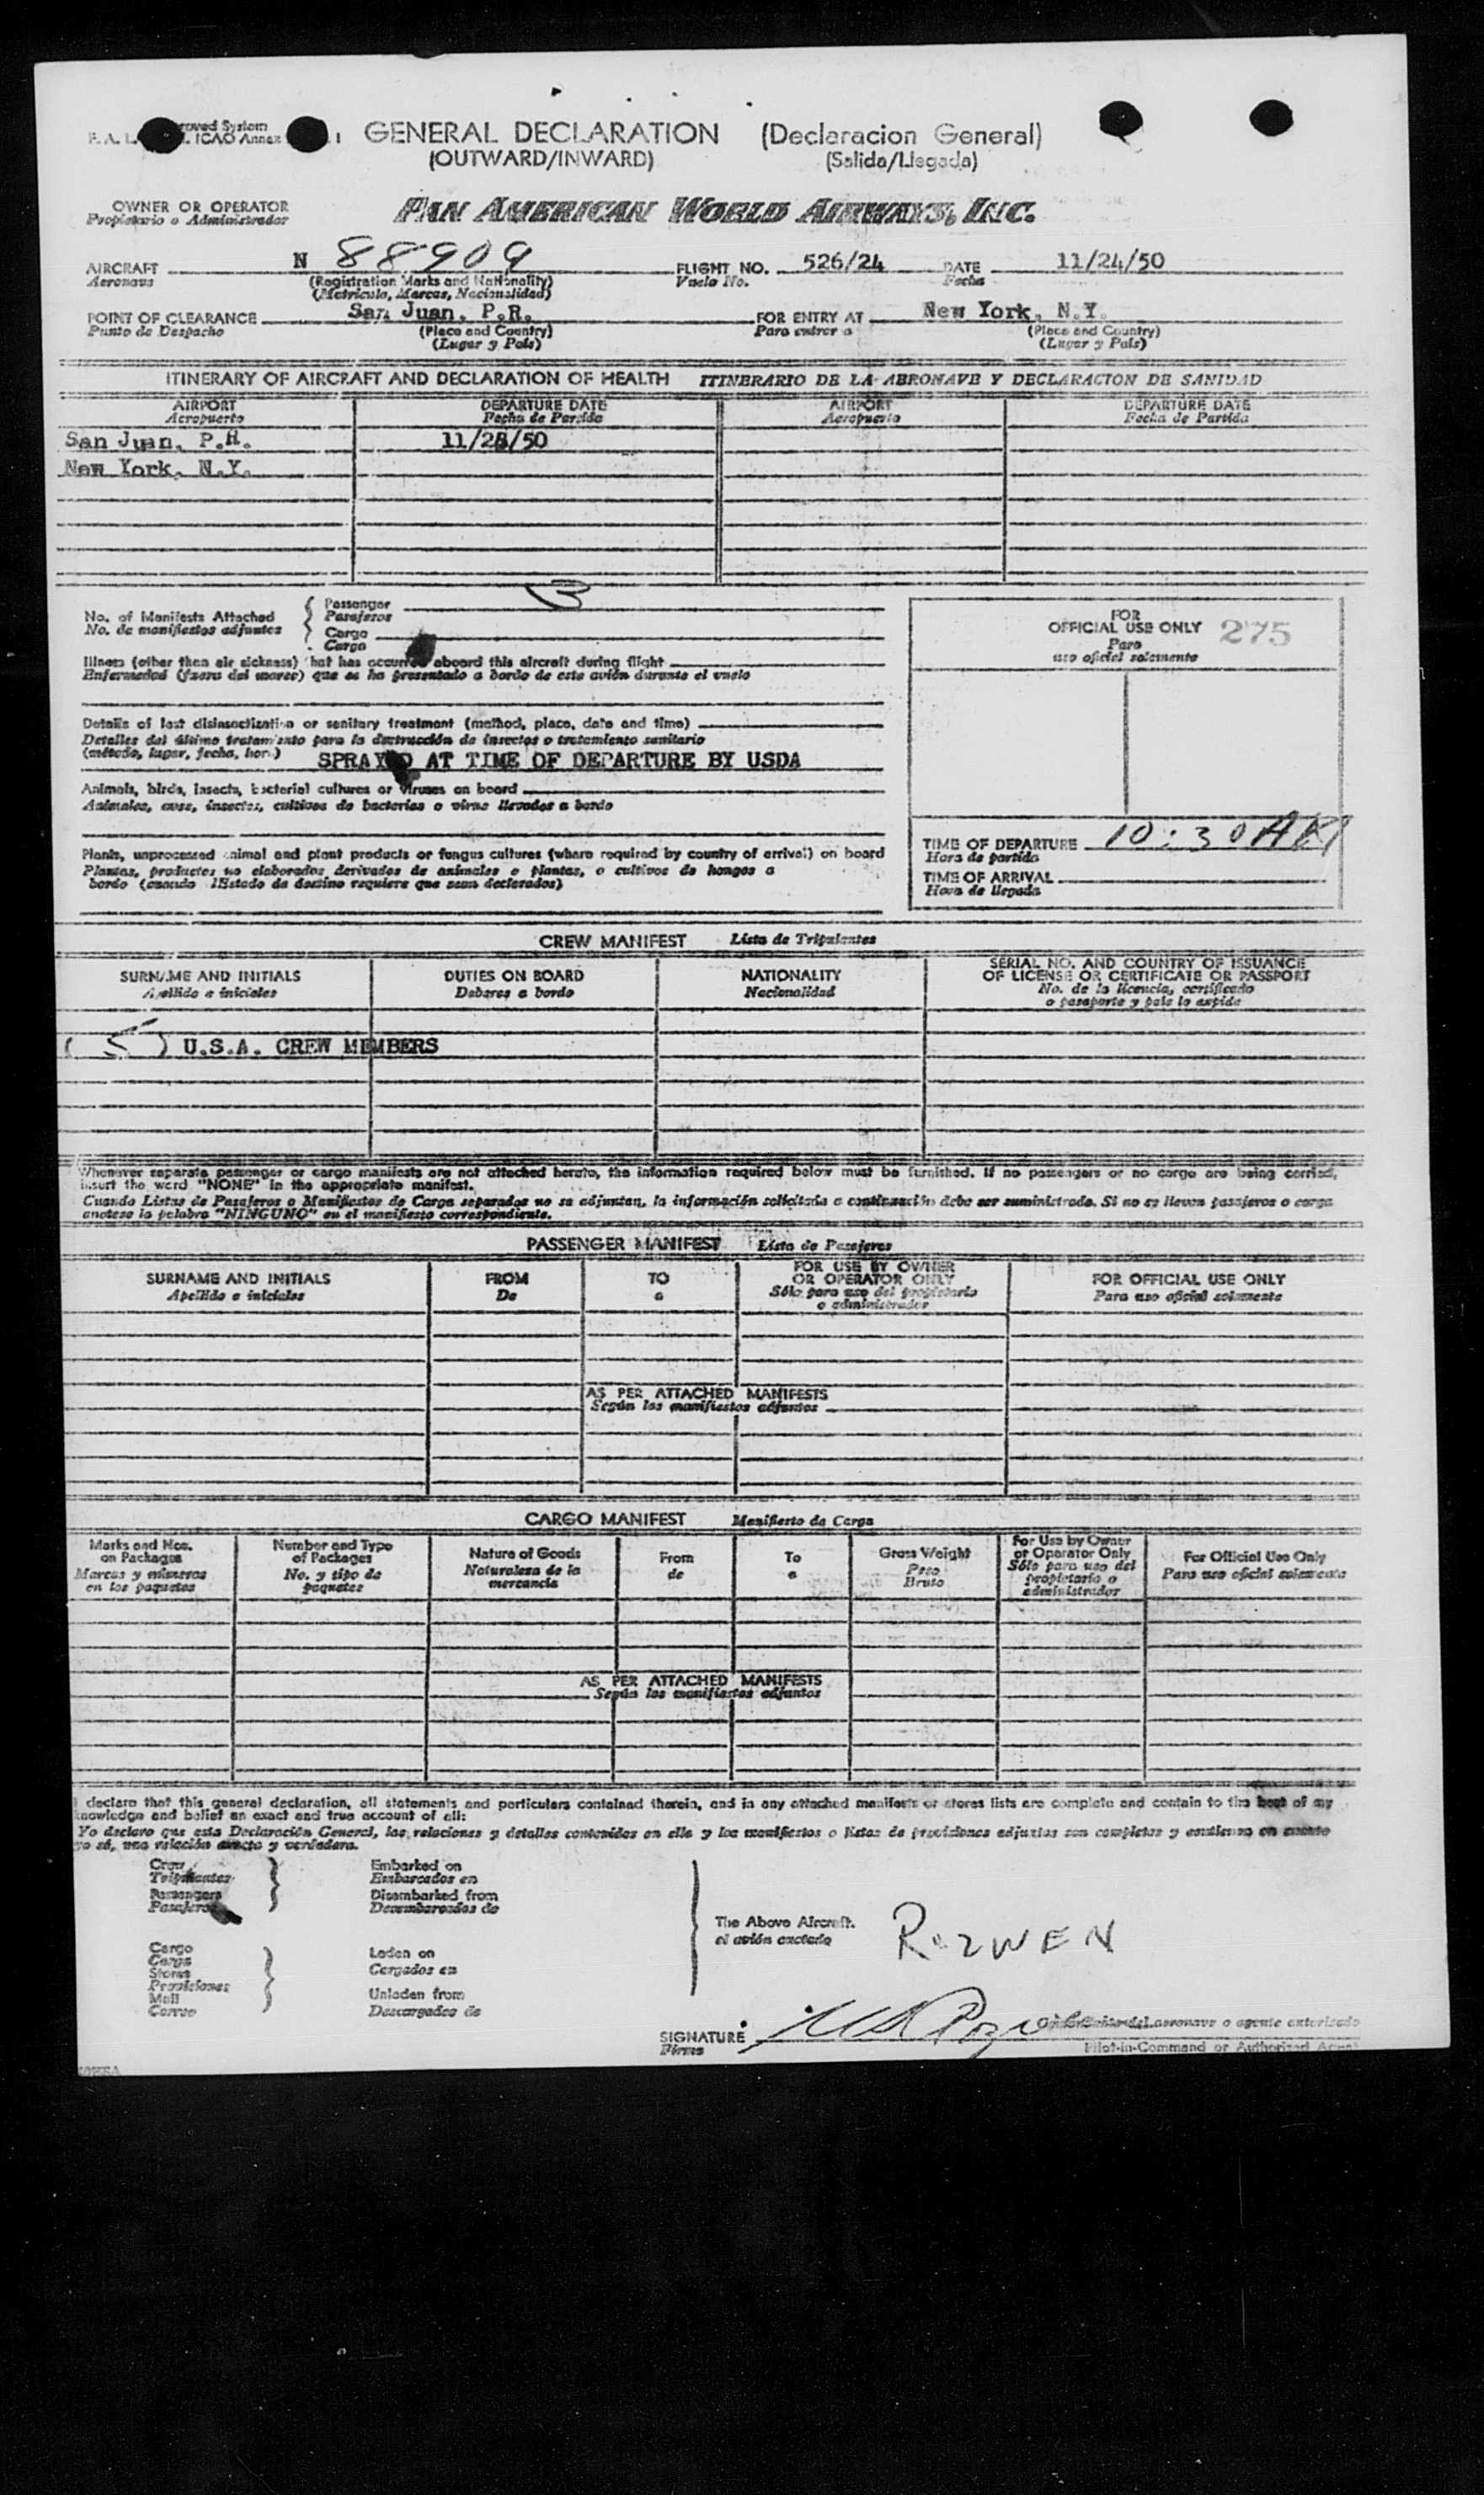 GENERAL DECLARATION (Declaracion General)
(OUTWARD/INWARD) (Salida/Llegada)
OWNER OR OPERATOR
Propietario o Administrador
PAN AMERICAN WORLD AIRWAYS, INC.
AIRCRAFT N 88909 FLIGHT NO. 526/24 DATE 11/24/50
Aeronave (Registration Marks and Nationality) Vuelo No. Fecha
(Matricula, Marcas, Nacionalidad)
POINT OF CLEARANCE San Juan, P.R. FOR ENTRY AT New York, N.Y.
Punto de Despacho (Place and Country) Para entrar a (Place and Country)
(Lugar y País) (Lugar y País)
ITINERARY OF AIRCRAFT AND DECLARATION OF HEALTH ITINERARIO DE LA AERONAVE Y DECLARACION DE SANIDAD
AIRPORT DEPARTURE DATE AIRPORT DEPARTURE DATE
Aeropuerto Fecha de Partida Aeropuerto Fecha de Partida
San Juan, P.R.
New York, N.Y.
No. of Manifests Attached Passenger 3
No. de manifiestos adjuntos Pasajeros
Cargo
Carga
FOR
OFFICIAL USE ONLY 275
Para
uso oficial solamente
Illness (other than air sickness) that has occurred aboard this aircraft during flight
Enfermedad (fuera del mareo) que se ha presentado a bordo de este avión durante el vuelo
Details of last disinsectization or sanitary treatment (method, place, date and time)
Detalles del último tratamiento para la destrucción de insectos o tratamiento sanitario
(método, lugar, fecha, hora) SPRAYED AT TIME OF DEPARTURE BY USDA
Animals, birds, insects, bacterial cultures or viruses on board
Animales, aves, insectos, cultivos de bacterias o virus llevados a bordo
Plants, unprocessed animal and plant products or fungus cultures (where required by country of arrival) on board
Plantas, productos no elaborados derivados de animales o plantas, o cultivos de hongos a
bordo (cuando lEstado de destino requiere que sean declarados)
TIME OF DEPARTURE 10:30 AM
Hora de partida
TIME OF ARRIVAL
Hora de llegada
CREW MANIFEST Lista de Tripulantes
SURNAME AND INITIALS DUTIES ON BOARD NATIONALITY SERIAL NO. AND COUNTRY OF ISSUANCE
OF LICENSE OR CERTIFICATE OR PASSPORT
Apellido e iniciales Deberes a bordo Nacionalidad No. de la licencia, certificado
o pasaporte y país lo expide
( 5 ) U.S.A. CREW MEMBERS
Whenever separate passenger or cargo manifests are not attached hereto, the information required below must be furnished. If no passengers or no cargo are being carried,
insert the word "NONE" in the appropriate manifest.
Cuando Listas de Pasajeros o Manifiestos de Carga separados no se adjuntan, la información solicitada a continuación debe ser suministrada. Si no se llevan pasajeros o carga
anotese la palabra "NINGUNO" en el manifiesto correspondiente.
PASSENGER MANIFEST Lista de Pasajeros
SURNAME AND INITIALS FROM TO FOR USE BY OWNER
OR OPERATOR ONLY FOR OFFICIAL USE ONLY
Apellido e iniciales De a Sólo para uso del propietario
o administrador Para uso oficial solamente
AS PER ATTACHED MANIFESTS
Según los manifiestos adjuntos
CARGO MANIFEST Manifiesto de Carga
Marks and Nos.
on Packages
Marcas y números
en los paquetes
Number and Type
of Packages
No. y tipo de
paquetes
Nature of Goods
Naturalesa de la
mercancia
From
de
To
a
Gross Weight
Peso
Bruto
For Use by Owner
or Operator Only
Sólo para uso del
propietario o
administrador
For Official Use Only
Para uso oficial solamente
AS PER ATTACHED MANIFESTS
Según los manifiestos adjuntos
I declare that this general declaration, all statements and particulars contained therein, and in any attached manifests or stores lists are complete and contain to the best of my
knowledge and belief an exact and true account of all:
Yo declaro que esta Declaración General, las relaciones y detalles contenidos en ella y los manifiestos o listas de provisiones adjuntas son completas y contienen en cuanto
yo sé, una relación exacta y verdadera.
Crew
Tripulantes
Passengers
Pasajeros
Embarked on
Embarcados en
Disembarked from
Desembarcados de
The Above Aircraft.
el avión anotado
Cargo
Carga
Stores
Provisiones
Mail
Correo
Laden on
Cargados en
Unladen from
Descargados de
SIGNATURE
Firma
Pilot-in-Command or Authorized Agent